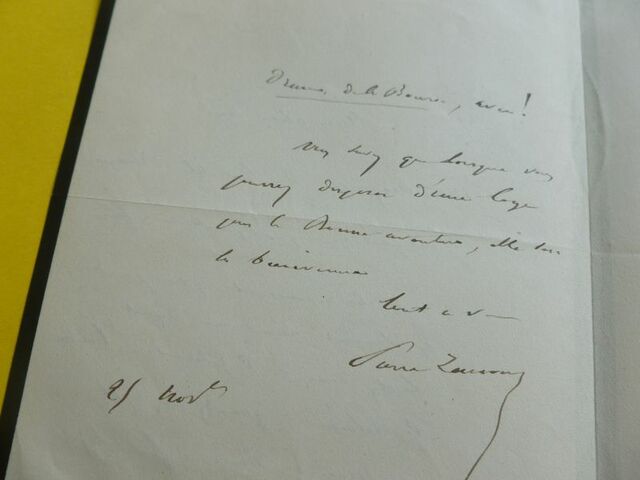 Drames de la Bourse, avec!
Vous savez que lorsque vous
pourrez disposer d'une loge
pour la Bonne aventure, elle sera
la bienvenue
tout à v
Pierre Zaccone
25 nov